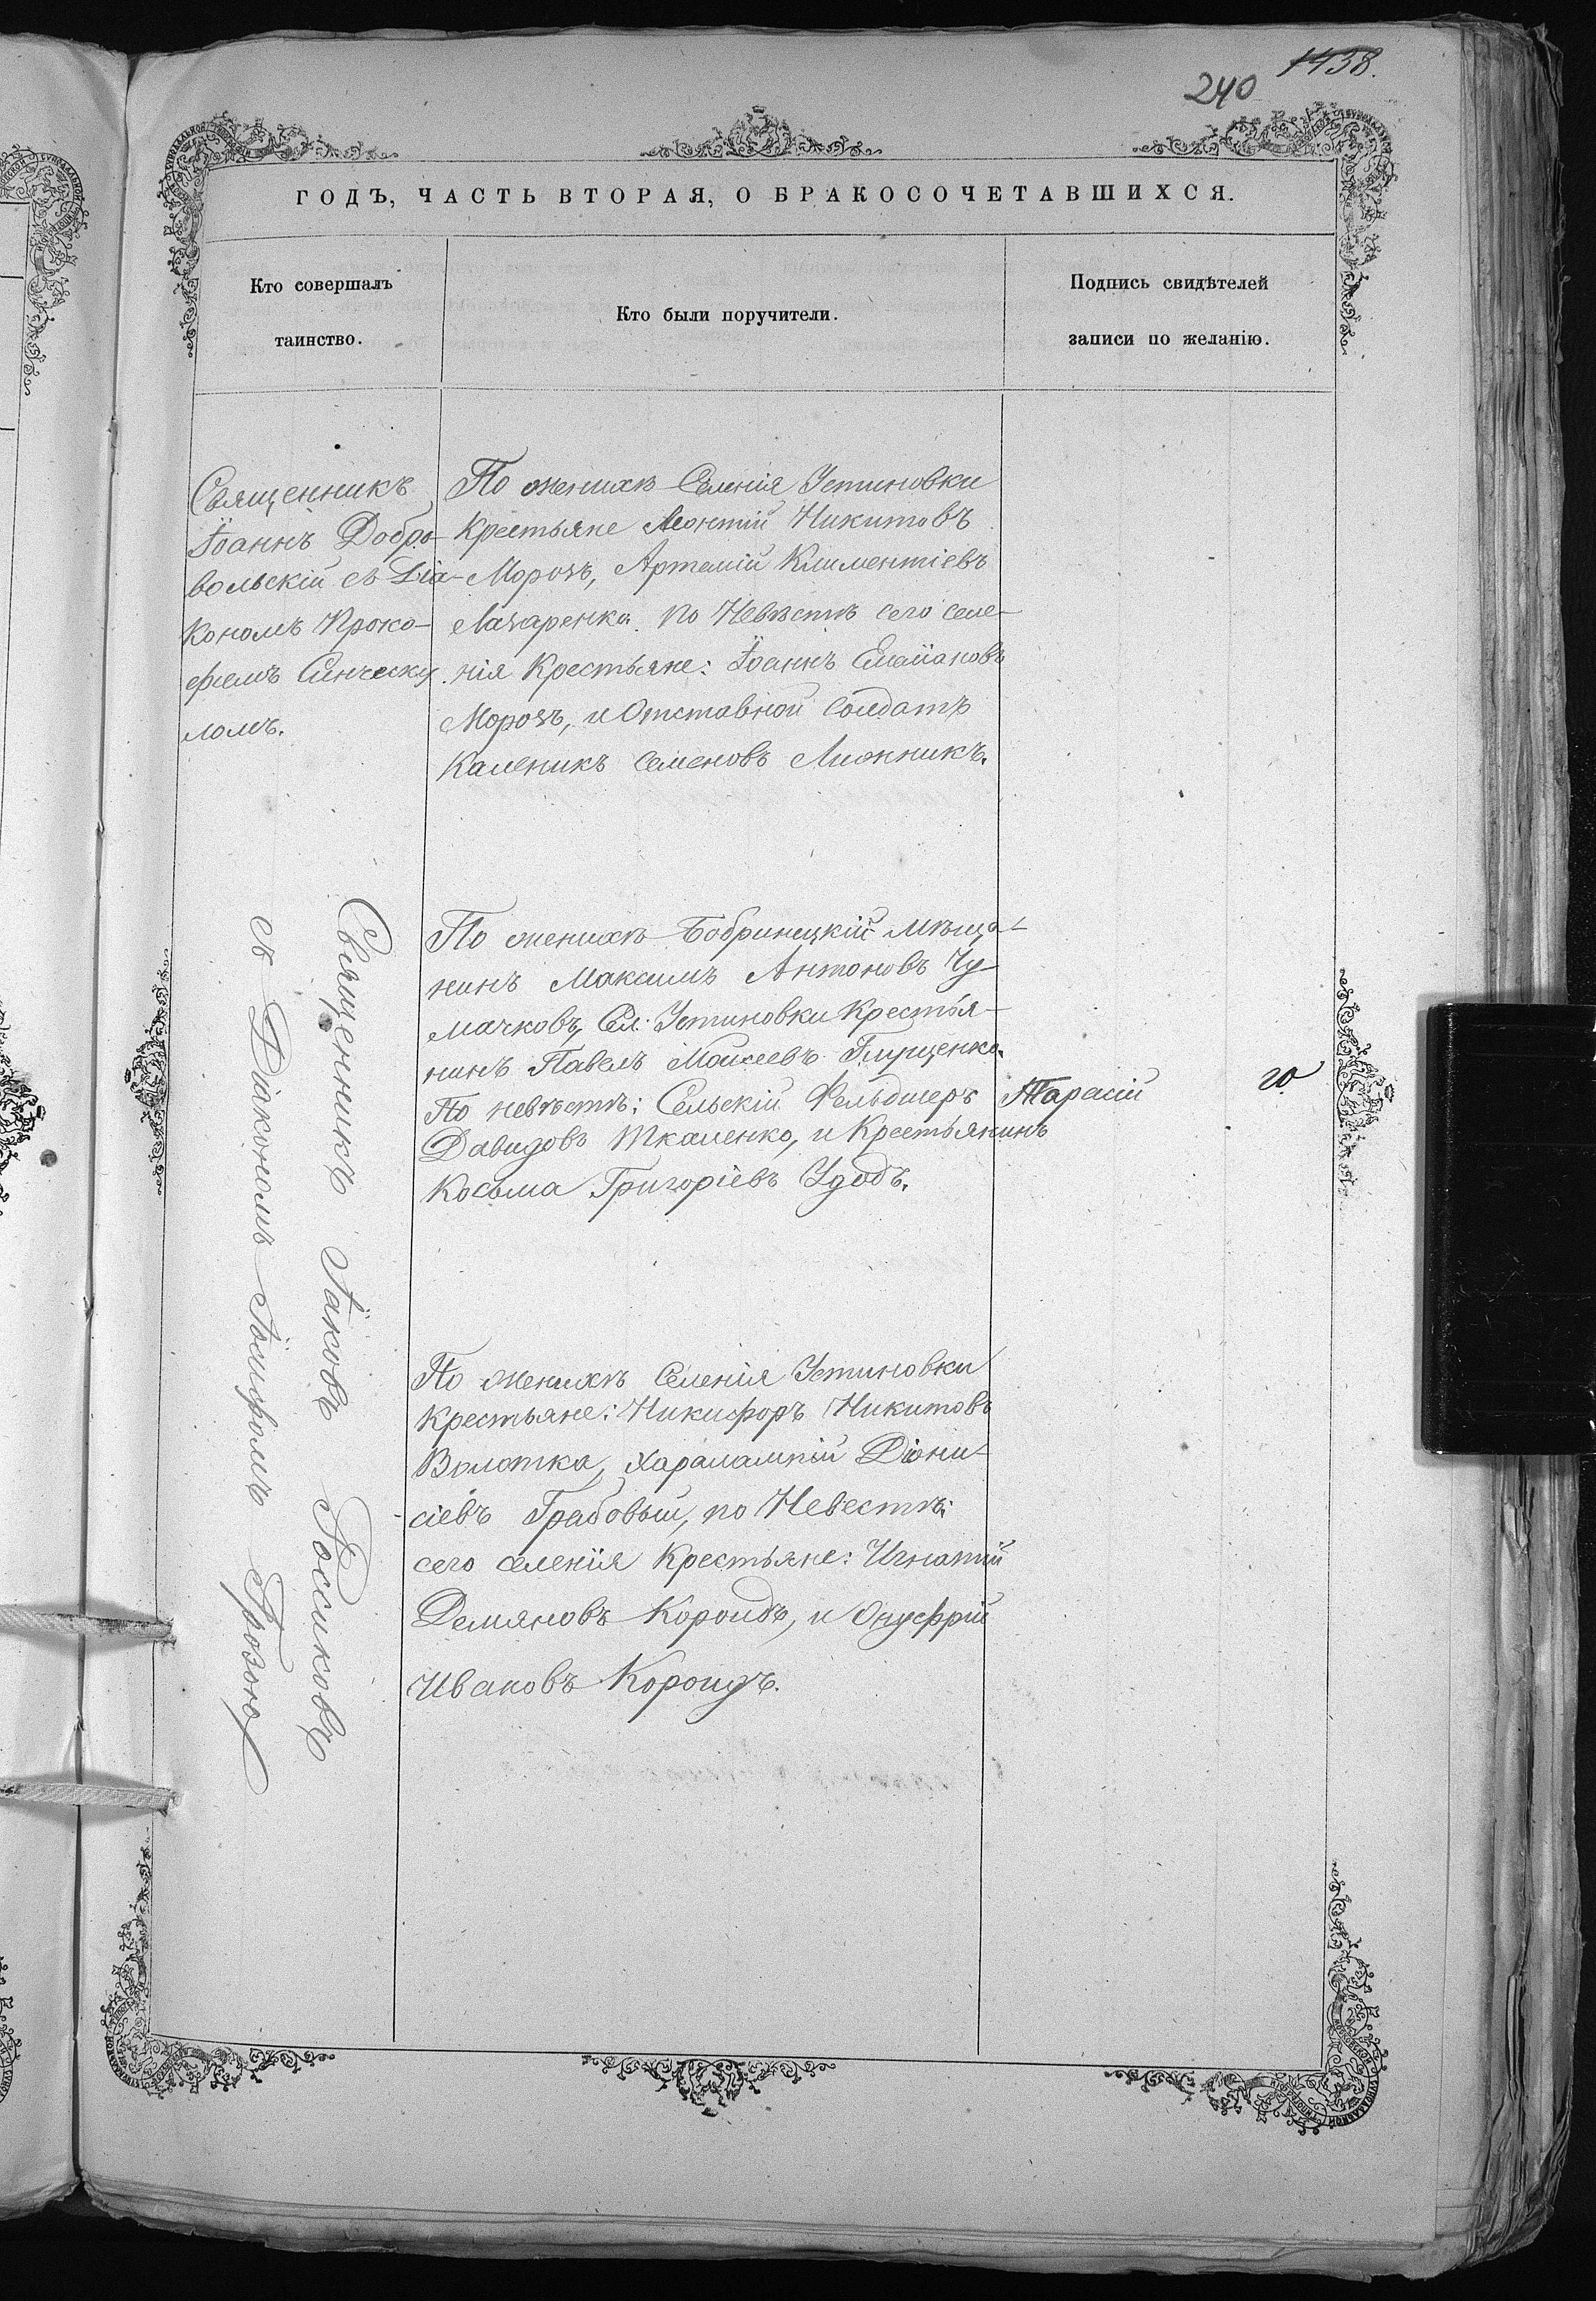 1438.
240
ГОДЪ, ЧАСТЬ ВТОРАЯ, О БРАКОСОЧЕТАВШИХСЯ.
Кто совершалъ
таинство.
Кто были поручители.
Подпись свидѣтелей
записи по желанію.
Священникъ
Іоаннъ Добро-
вольскій съ Діа-
кономъ Проко-
фіемъ
ломъ.
По женихѣ Селенія Устиновки
Крестьяне Леонтій Никитовъ
Морозъ, Артемій Климентіевъ
Лазаренко. по Невѣстѣ сего селе-
нія Крестьяне: Іоаннъ
Морозъ, и Отставной Солдатъ
Каленикъ Семеновъ
Священникъ Іаковъ Россиковъ
съ Діакономъ Іосифомъ Грозою
По женихѣ Бобринецкій мѣща-
нинъ Максимъ Антоновъ Чу-
мачковъ, Сел. Устиновки Крестья-
нинъ Павелъ Моисеевъ Глущенко.
По невѣстѣ: Сельскій Фельдшеръ Тарасій
Давидовъ Ткаленко, и Крестьянинъ
Косьма Григоріевъ Удодъ.
По женихѣ Селенія Устиновки
Крестьяне: Никифоръ Никитовъ
Волотка, Харалампій Діони-
сіевъ Грабовый, по Невестѣ:
сего селенія Крестьяне: Игнатій
Демяновъ Короидъ, и Онуфрій
Ивановъ Короидъ.